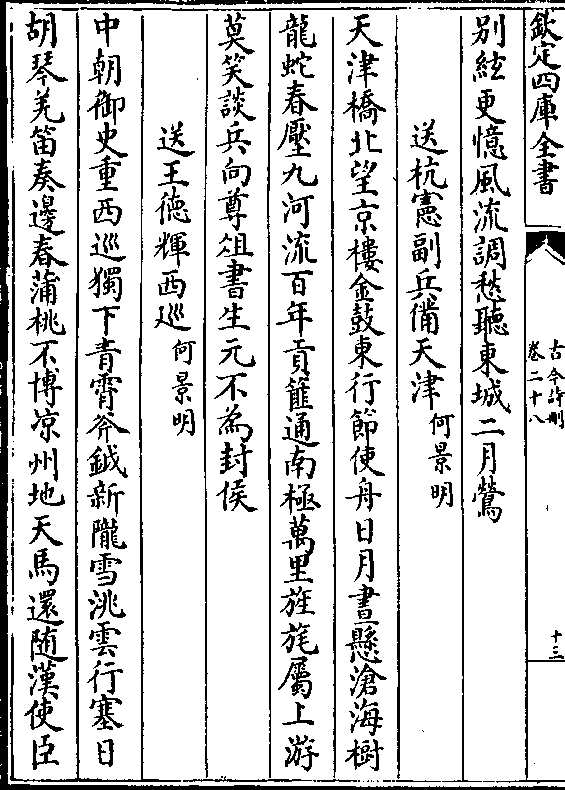 欽定四庫全書
古今詩刪
卷二十八
十三
别絃更憶風流調愁聽東城二月鶯
送杭憲副兵備天津何景明
天津橋北望京樓金鼓東行節使舟日月晝懸滄海樹
龍蛇春壓九河流百年貢篚通南極萬里旌旄屬上游
莫笑談兵向尊俎書生元不為封侯
送王德輝西巡何景明
中朝御史重西巡獨下青霄斧鉞新隴雪洮雲行塞日
胡琴羌笛奏邊春蒲桃不博凉州地天馬還随漢使臣